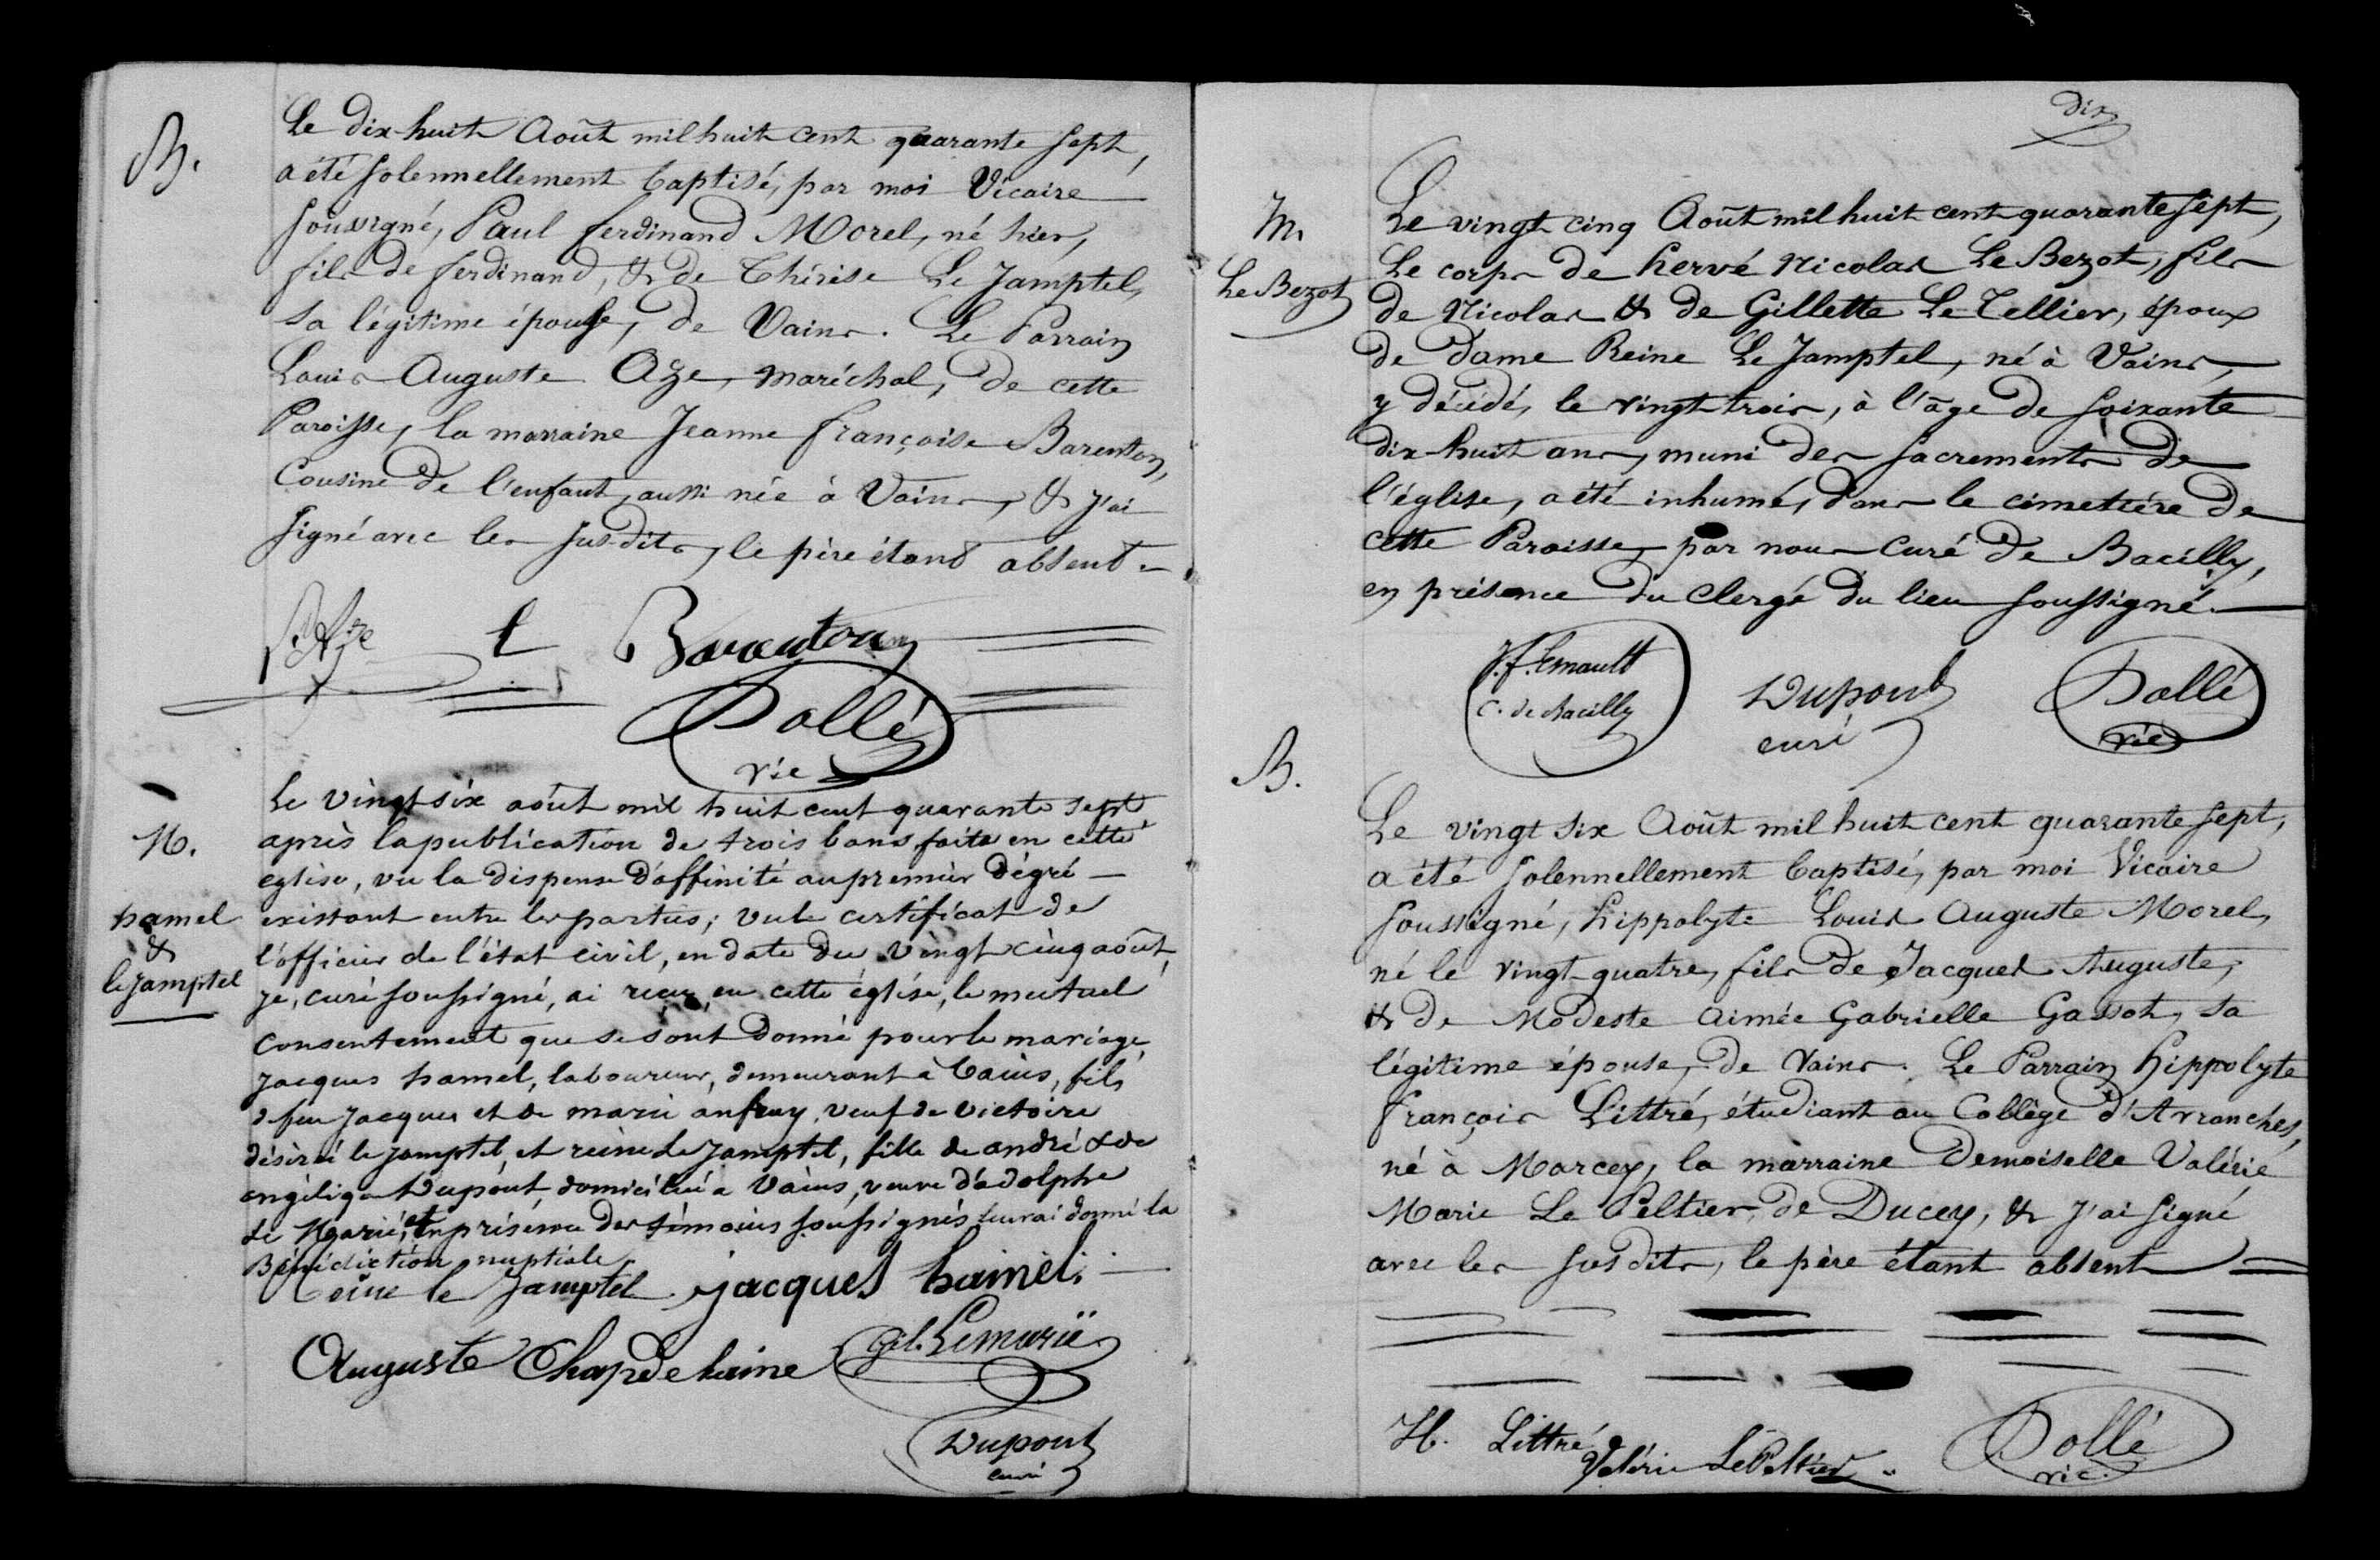 B.
Le dix-huit Août mil huit cent quarante sept,
a été solennellement baptisé, par moi Vicaire
soussigné, Paul ferdinand Morel, né hier,
fils de ferdinand, & de Thérèse Le Jamptel,
sa légitime épouse, de Vains. Le Parrain
Louis Auguste Aze, maréchal, de cette
Paroisse, la marraine Jeanne françoise Barenton,
Cousine de l'enfant, aussi née à Vains, & j'ai
signé avec les susdits, le père étant absent.
Aze Barenton
Dollé
vic
M.
hamel
&
le jamptel
Le vingt six août mil huit cent quarante sept
après la publication de trois bans faite en cette
eglise, vu la dispense d'affinité au premier dégré
existant entre les parties; vu le certificat de
l'officier de l'état civil, en date du vingt cinq août,
je, curé soussigné, ai reçu, en cette église, le mutuel
consentement que se sont donné pour le mariage,
jacques hamel, laboureur, demeurant à Vains, fils
de feu jacques et de marie anfray, veuf de victoire
désirée le jamptel, et reine le jamptel, fille de andré & de
angélique Dupont, domiciliée à Vains, veuve d'adolphe
le Marié, et en présence des témoins soussignés leur ai donné la
Bénédiction nuptiale.
Reine le Jamptel jacques hamel.
Auguste Chapdelaine Gil. Lemarié
Dupont
curé
dix
In.
Le Bezot
Le vingt cinq Août mil huit cent quarante sept,
Le corps de hervé Nicolas Le Bezot, fils
de Nicolas & de Gillette Le Tellier, époux
de Dame Reine Le Jamptel, né à Vains,
y décédé, le vingt-trois, à l'âge de soixante
dix-huit ans, muni des sacrements de
l'église, a été inhumé, dans le cimetière de
cette Paroisse, par nous Curé de Bacilly,
en présence du Clergé du lieu soussigné.
J. f. Emault
c. de Bacilly
Dupont
curé
Dollé
vic
B.
Le vingt six Août mil huit cent quarante sept,
a été solennellement baptisé, par moi Vicaire
soussigné, hippolyte Louis Auguste Morel,
né le vingt-quatre, fils de Jacques Auguste,
& de Modeste Aimée Gabrielle Gassot, sa
légitime épouse, de Vains. Le Parrain hippolyte
françois Littré, étudiant au Collège d'Avranches,
né à Marcey, la marraine Demoiselle Valérie
Marie Le Peltier, de Ducey, & j'ai signé
avec les susdits, le père étant absent
H. Littré
Valérie Le Peltier
Dollé
vic.